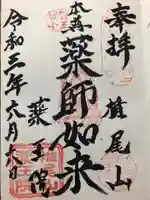 奉拝
椎尾山
本尊
薬師如来
薬王院
令和三年六月六日